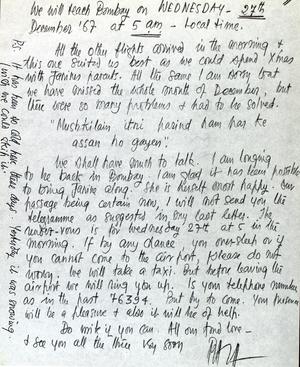 We will reach Bombay on WEDNESDAY - 27th
December '67 at 5 am - Local time.
All the other flights arrived in the morning &
this one suited us best as we could spend Xmas
with Janine's parents. All the same I am sorry that
we have missed the whole month of December, but
there were so many problems & had to be solved.
"Mushkilain itni parind ham pas ke
assan ho gayen".
We shall have much to talk. I am longing
to be back in Bombay. I am glad it has been possible
to bring Janine along. She is herself most happy. Our
passage being certain now, I will not send you the
telegramme as suggested in my last letter. The
rendez-vous is for Wednesday 27th at 5 in the
morning. If by any chance, you oversleep or if
you cannot to come to the airport, please do not
worry. We will take a taxi. But before leaving the
airport we will ring you up. Is your telephone number
as in the past 76394. But try to come. Your presence
will be a pleasure & also it will be of help.
Do write if you can. All our fond love -
& see you all the three very soon
PS. It has been so cold here these days. Yesterday it was snowing
I wish we could ship it.